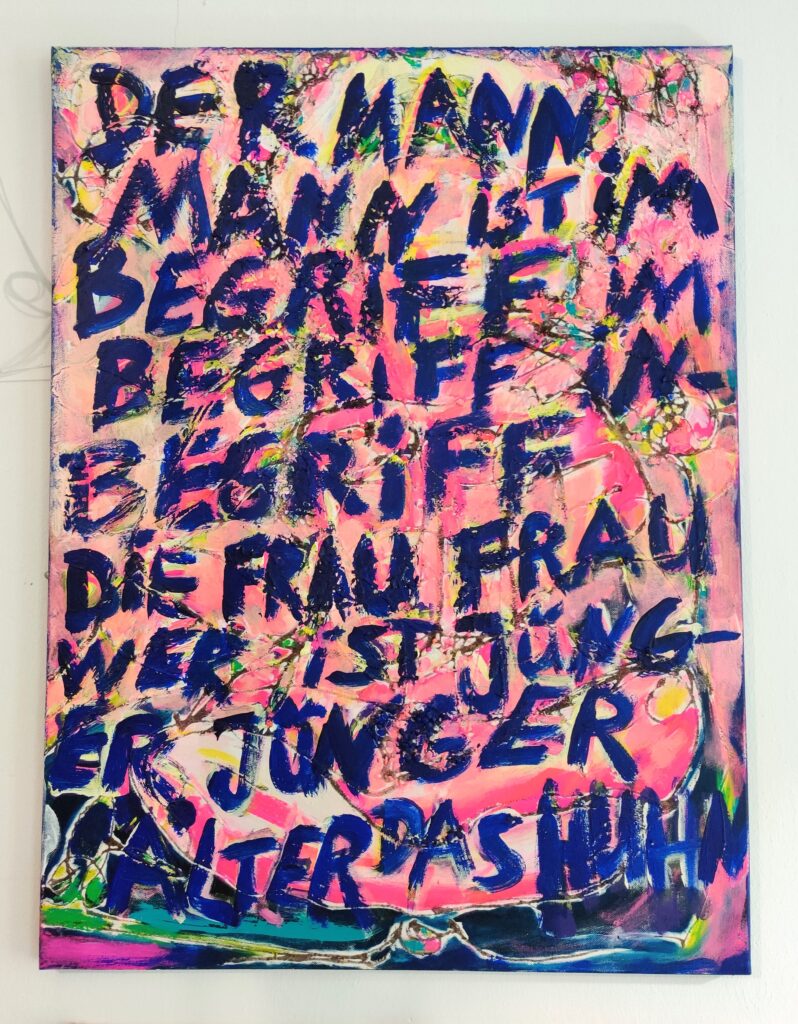 DER MANN
MANN iST iM
BEGRiFF iM
BEGRiFF iN-
BEGRiFF
DiE FRAU FRAU
WER iST JÜNG-
ER JÜNGER
ÄLTER DAS HUHN